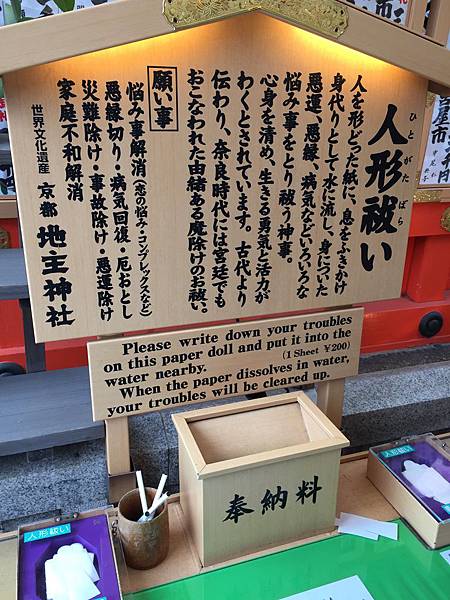 人形祓い
ひとがたはらい
人を形どった紙に、息をふきかけ
身代りとして水に流し、身についた
悪運、悪縁、病気などいろいろな
悩み事をとり祓う神事。
心身を清め、生きる勇気と活力が
わくとされています。古代より
伝わり、奈良時代には宮廷でも
おこなわれた由緒ある魔除けのお祓い。
願い事
悩み事解消(恋の悩み・コンプレックスなど)
悪縁切り・病気回復・厄おとし
災難除け・事故除け・悪運除け
家庭不和解消
世界文化遺産 京都 地主神社
Please write down your troubles
on this paper doll and put it into the
water nearby. (1 Sheet ¥200)
When the paper dissolves in water,
your troubles will be cleared up.
奉納料
人形祓い
人形祓い